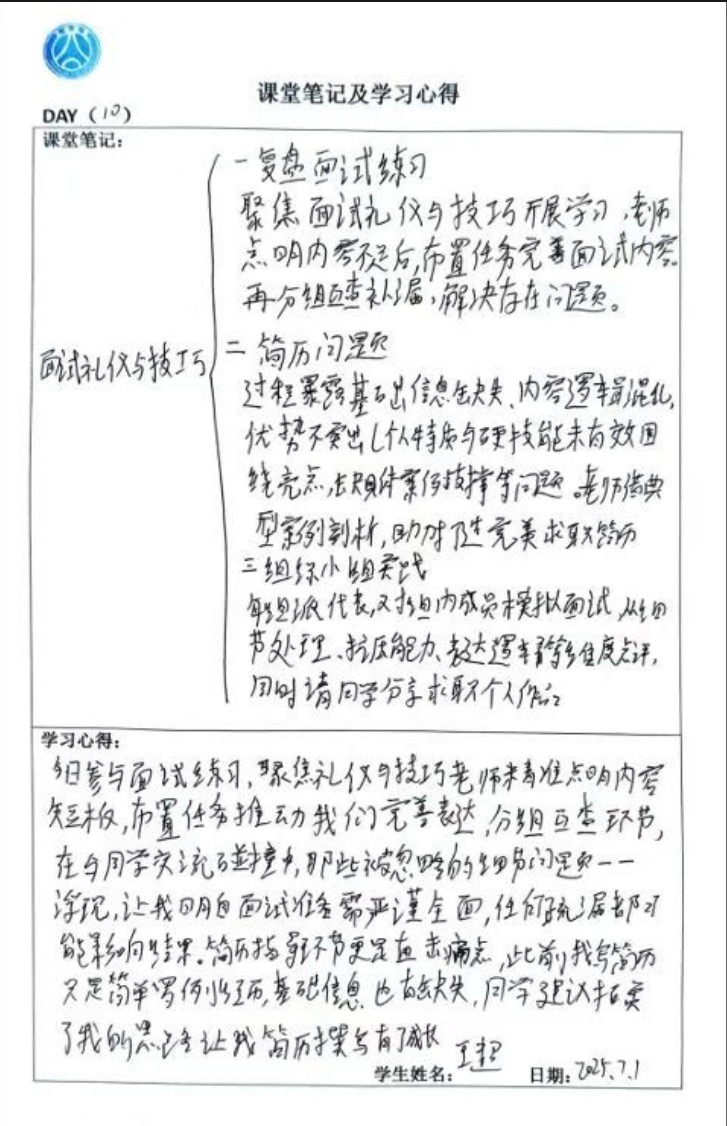 课堂笔记及学习心得
DAY（10）
课堂笔记：
面试礼仪与技巧
一 复盘面试练习
聚焦面试礼仪与技巧开展学习，老师
点明内容不足后，布置任务完善面试内容。
再分组互查补漏，解决存在问题。
二 简历问题
过程暴露基础信息缺失、内容逻辑混乱，
优势不突出，个人特质与硬技能未有效围
绕亮点，缺具体案例支撑等问题。老师借典
型案例剖析，助力打造完美求职简历
三 组织小组实践
每组派代表，对组内成员模拟面试，从细
节处理、抗压能力、表达逻辑等维度点评，
同时请同学分享求职个人作品
学习心得：
今日参与面试练习，聚焦礼仪与技巧老师精准点明内容
短板，布置任务推动我们完善表达，分组互查环节，
在与同学交流碰撞中，那些被忽略的细节问题一一
浮现，让我明白面试准备需严谨全面，任何疏漏都可
能影响结果。简历指导环节更是直击痛点，此前我写简历
只是简单罗列经历，基础信息也有缺失，同学建议拓宽
了我的思路让我简历撰写有了成长
学生姓名：王超
日期：2025.7.1